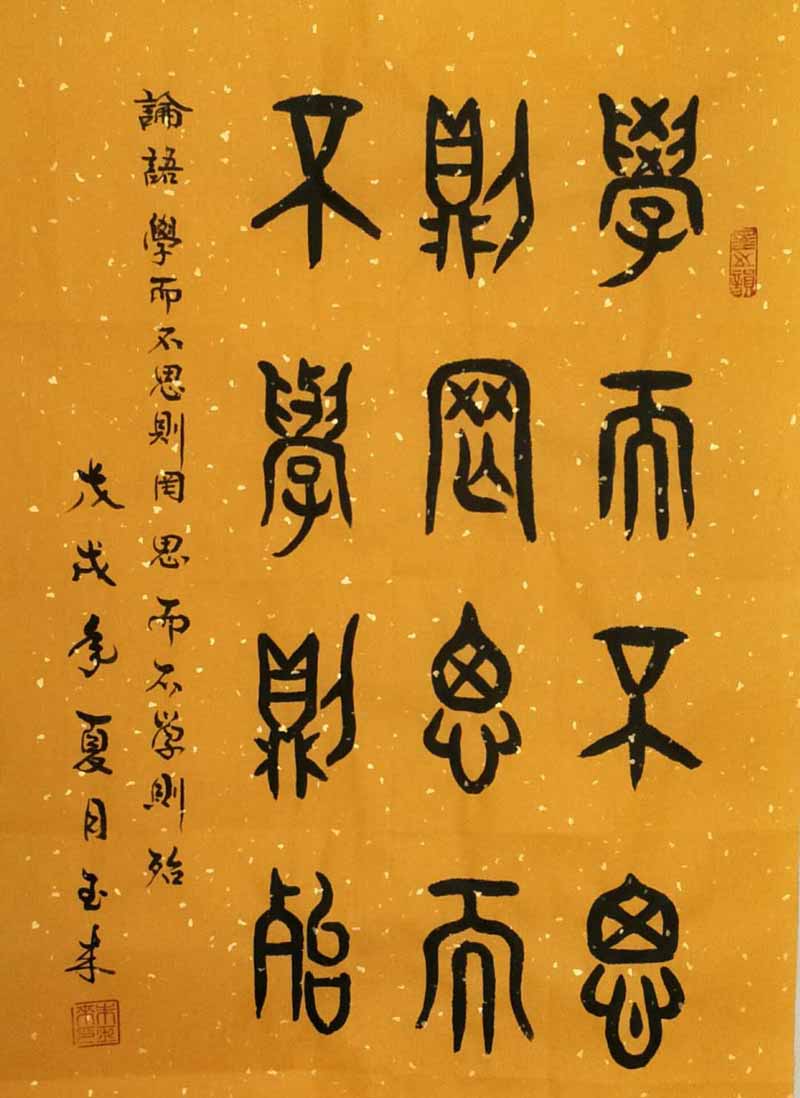 學而不思
則罔思而
不學則殆
論語學而不思則罔思而不学則殆
戊戌年夏月玉来